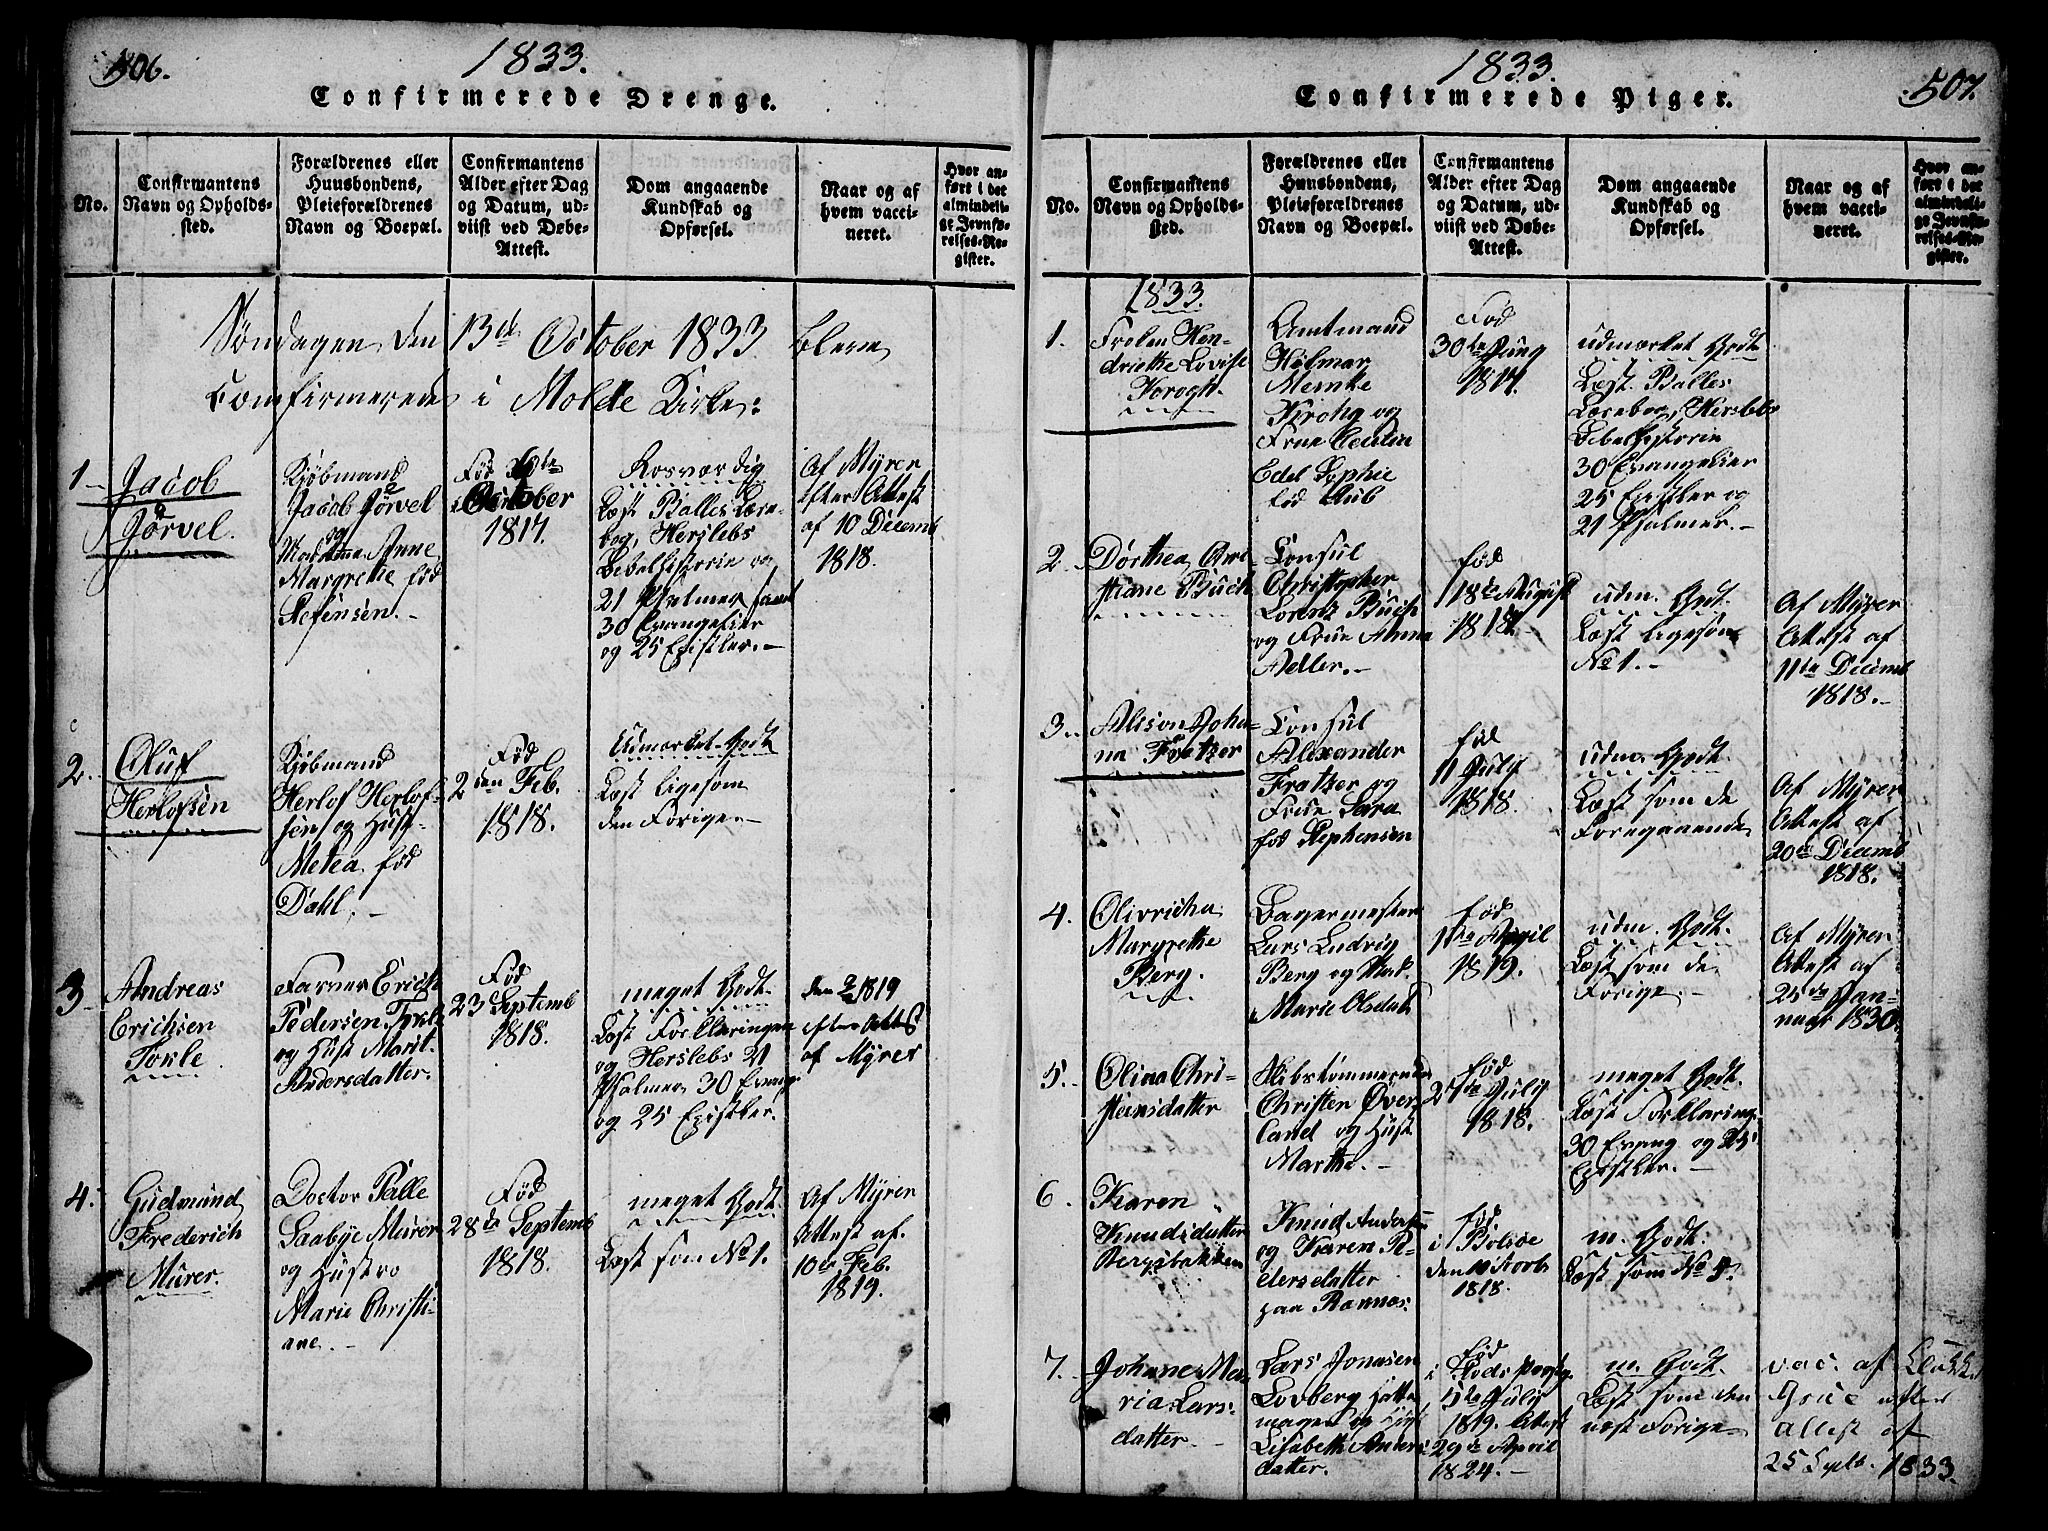 506.
1833.
Confirmerede Drenge.
No.
Confirmantens
Navn og Opholds-
sted.
Forældrenes eller
Huusbondens,
Pleieforældrenes
Navn og Boepæl.
Confirmantens
Alder efter Dag
og Datum, ud-
viist ved Døbe-
Attest.
Dom angaaende
Kundskab og
Opførsel.
Naar og af
hvem vacci-
neret.
Hvor an-
ført i det
almindeli-
ge Jevnfø-
relses-Re-
gister.
Søndagen den 13de October 1833 bleve
Confirmerede i Molde Kirke:
1
Jacob
Jørvel.
Kjøbmand
Jacob Jørvel
og
Madamme Anne
Margrethe fød
Født
October
1817.
Rosværdig
Læst Balles Lære-
bog, Herslebs
Bibelhistorie og
21 Psalmer samt
30 Evangelier
og 25 Epistler.-
Af Myren
efter Attest
af 10 Decemb
1818.
2.
Oluf
Herlofsen
Kjøbmand
Herlof Herlof-
sen og Hust-
Metea fød
Dahl.-
Fød
2den Feb.
1818.
Udmærket Godt
Læst ligesom
den Forige-
3
Andreas
Erichsen
Tokle
Farver Erich
Pedersen Tokle
og Hust Marit
Andersdatter.
Fød
23 Septemb
1818.
meget Godt.
Læst Forklaringen
og Herslebs 21
Psalmer 30 Evang.
og 25 Epistler.
den 2/ 1819
efter Attest
af Myren
4.
Gudmund
Frederich
Mürer.
Doctor Palle
Saabye Mürer
og Hustro
Marie Christi-
ane.-
Fød
28de Septemb
1818.
meget Godt
Læst som No 1.
Af Myren
Attest af
10de Feb.
1819.
1833.
Confirmerede Piger.
507.
No.
Confirmantens
Navn og Opholds-
sted.
Forældrenes eller
Huusbondens,
Pleieforældrenes
Navn og Boepæl.
Confirmantens
Alder efter Dag
og Datum, ud-
viist ved Døbe-
Attest.
Dom angaaende
Kundskab og
Opførsel.
Naar og af
hvem vacci-
neret.
Hvor an-
ført i det
almindeli-
ge Jevnfø-
relses-Re-
gister.
1833.
1.
Frøken Hen-
driette Lovise
Amtmand
Hilmar
Meinke
Krohg og
Frue Cecilia
Edel Sophie
fød Aub
Fød
30te Juny
1817.
udmærket Godt
Læst Balles
Lærebog, Herslebs
Bibelhistorie
30 Evangelier
25 Epistler og
21 Psalmer.-
2.
Dorthea Chri-
stiane Buch
Consul
Christopher
Lorentz Buch
og Frue Anna
Adler.-
fød
18de August
1818.
udm. Godt.
Læst ligesom
No 1.-
Af Myren
Attest af
11te Decemb
1818.-
3.
Alison Joha-
na Fratzer
Consul
Alexander
Fratzer og
Frue Sara
fød Stephensen
fød
11 July
1818.
udm. Godt.
Læst som de
Foregaaende
Af Myren
Attest af
20de Decemb
1818.
4.
Olivricha
Margrethe
Berg.
Bagermester
Lars Ludvig
Berg og Mad.
Marie Olsdatt
fød
11te April
1819.
udm. Godt.
Læst som de
Forige.-
Af Myren
Attest af
25de Jan-
nuar 1830.
5.
Olina Chri-
stensdatter
Skibstømmermand
Christen Øver-
land og Hust
Marthe.-
fød
27de July
1818.
meget Godt.
Læst Forklaring
30 Evang og 25
Epistler.-
6.
Karen
Knudsdatter
Bergsbakken
Knud Andersen
og Karen Pe-
dersdatter
paa Rannæs.
fød
i Bolsøe
den 10 Novb
1818.
m. Godt.
Læst som No 5.
7.
Johane Ma-
ria Lars-
datter.-
Lars Jonasen
Lovberg Hatte-
mager og Hust
Lisabeth Anders-
datter.
fød
i
5te July
1819. Attest
29de April
1824.-
m. Godt.
Læst som den
næst Forige-
vac. af Klokker
efter
Attest af
25 Sptb. 1833.